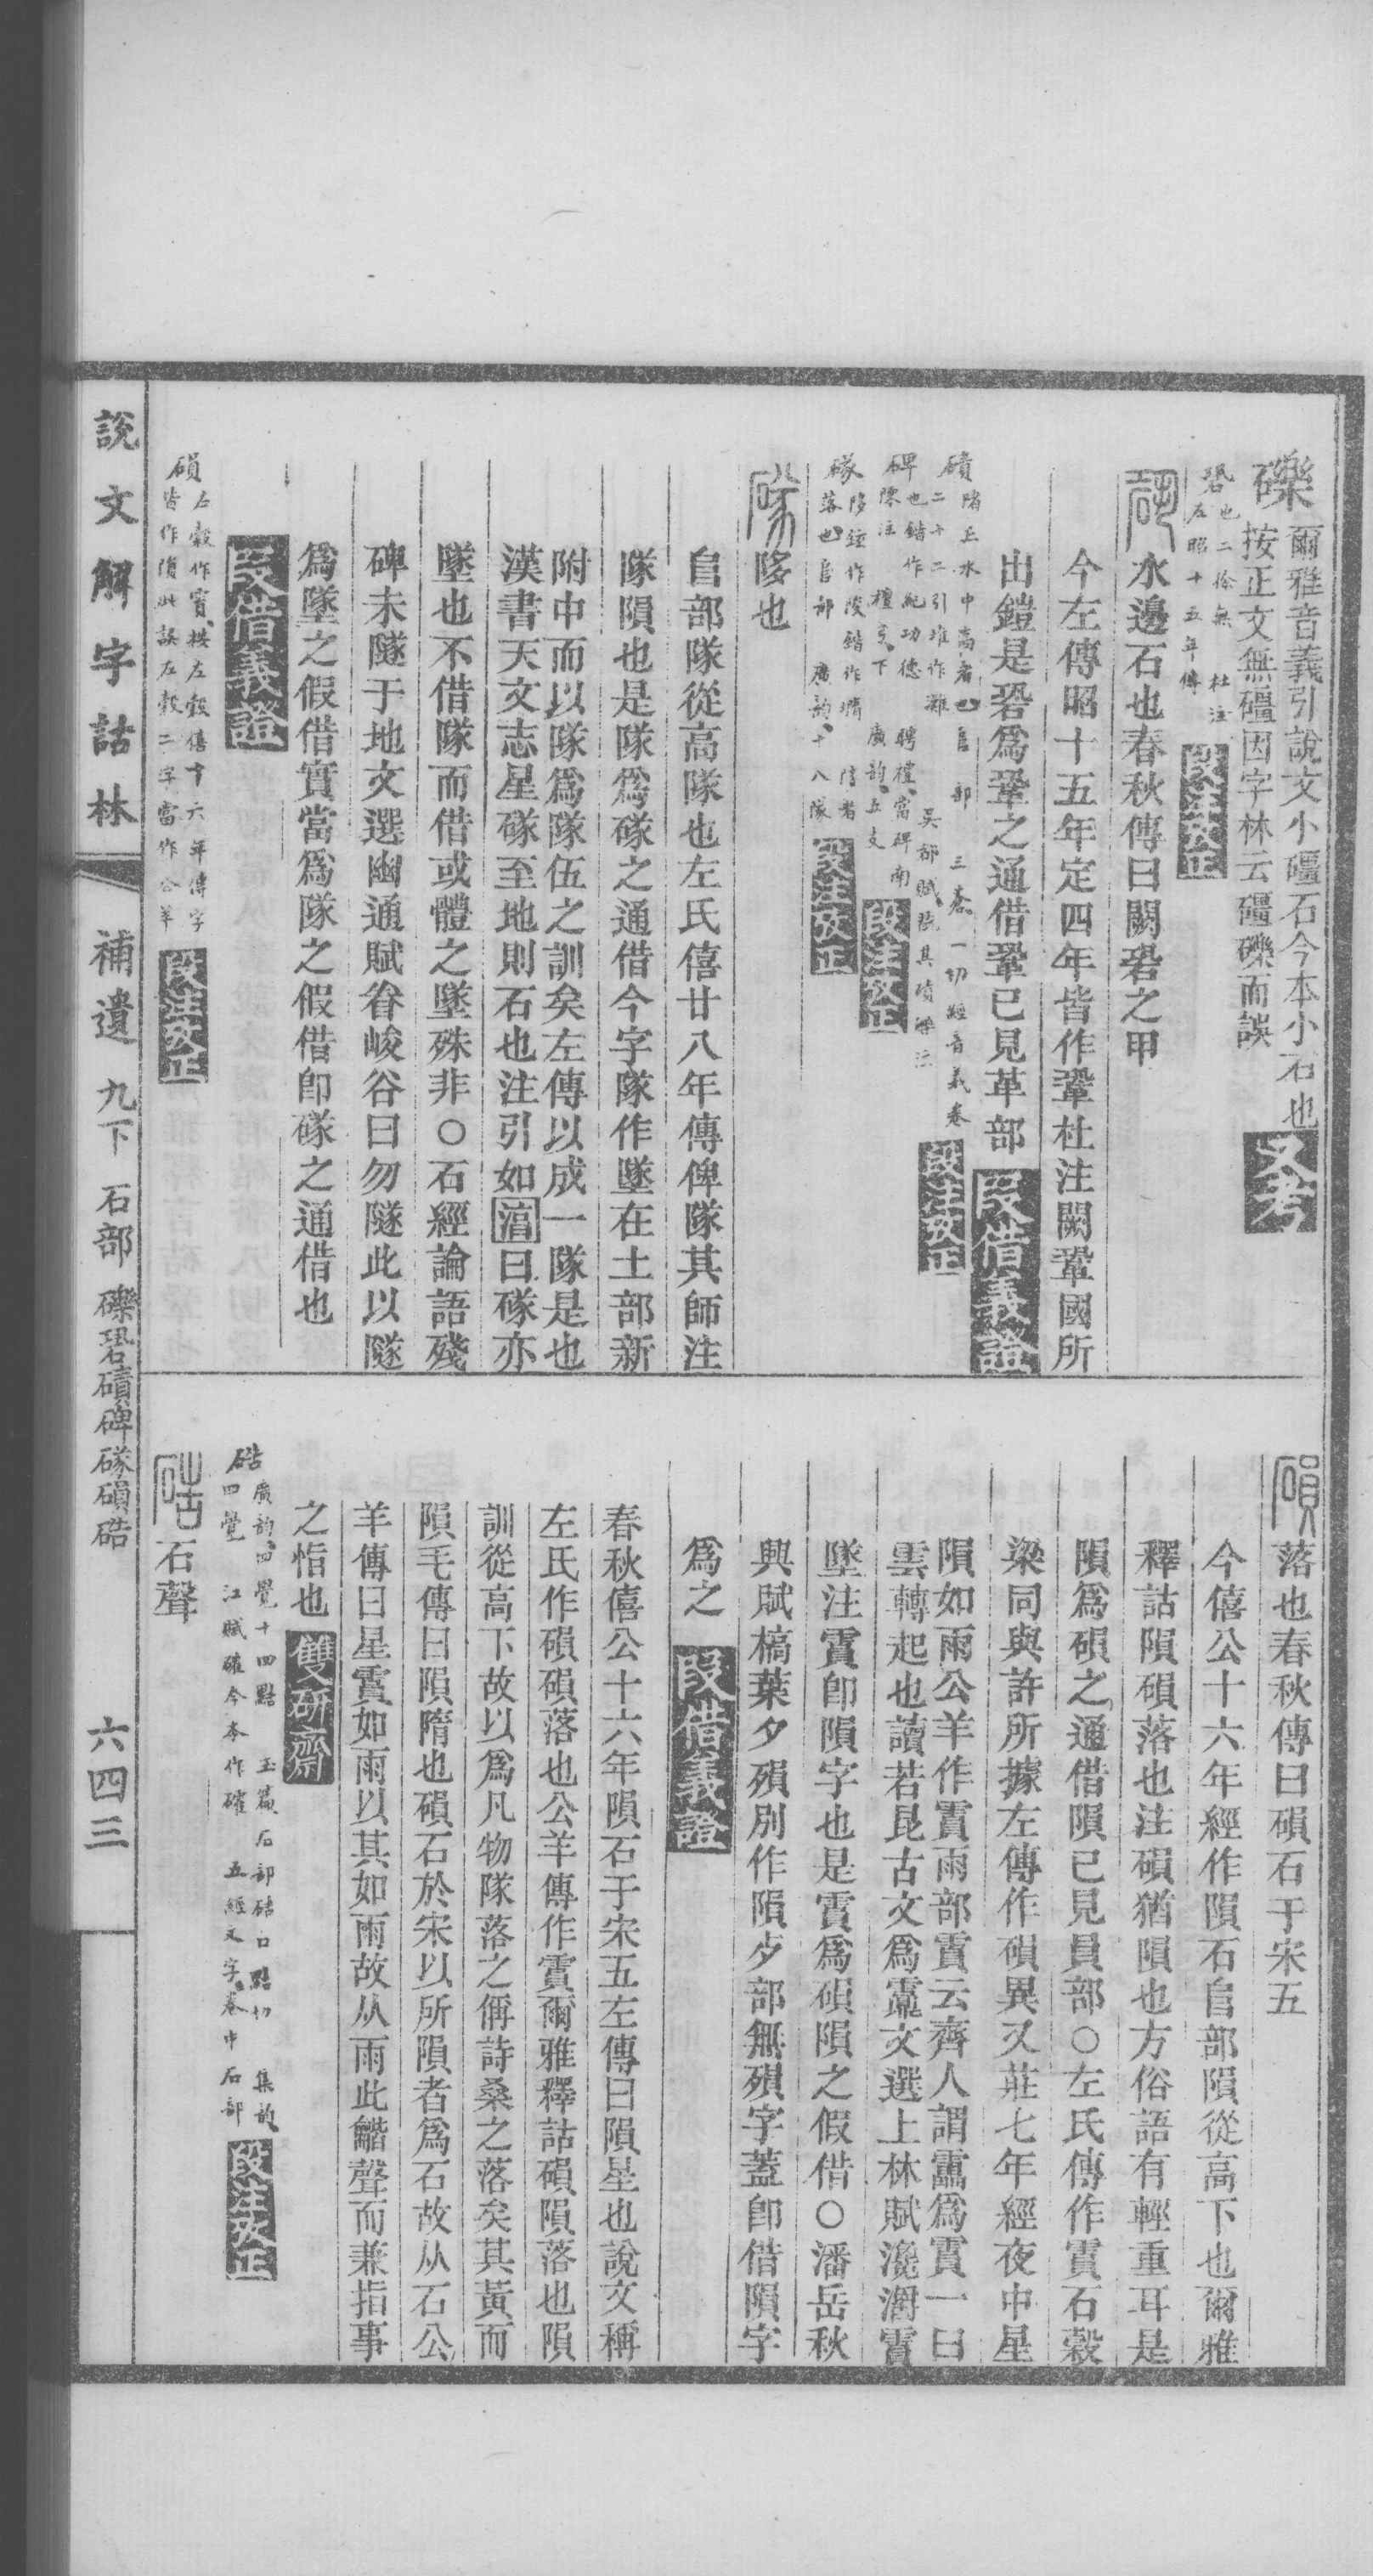 礫
爾雅音義引說文小礓石今本小石也
按正文無礓因字林云礓礫而誤
又考
碧也二徐無　杜注
左昭十五年傳
段注攷正
水邊石也春秋傳曰闕碧之甲
今左傳昭十五年定四年皆作鞏杜注闕鞏國所
出鎧是碧爲鞏之通借鞏已見革部
段借義證
磧陼丘水中高者也𨸏部　三蒼　一切經音義卷
二十二引堆作灘　吳都賦
段注攷正
碑也鍇作紀功德　聘禮當碑南
陳注　檀弓下　廣韵五支
段注攷正
䃍陊
落也𨸏部　廣韵十八隊
段注攷正
陊也
𨸏部隊從高隊也左氏僖廿八年傳俾隊其師注
隊隕也是隊爲䃍之通借今字隊作墜在土部新
附中而以隊爲隊伍之訓矣左傳以成一隊是也
漢書天文志星䃍至地則石也注引如滈曰䃍亦
墜也不借隊而借或體之墜殊非○石經論語殘
碑未隧于地文選幽通賦眷峻谷曰勿隧此以隧
爲墜之假借實當爲隊之假借卽䃍之通借也
段借義證
磒左穀作實按左穀僖十六年傳字
皆作隕此誤左穀二字當作公羊
段注攷正
落也春秋傳曰磒石于宋五
今僖公十六年經作隕石𨸏部隕從高下也爾雅
釋詁隕磒落也注磒猶隕也方俗語有輕重耳是
隕爲磒之通借隕已見員部○左氏傳作霣石穀
梁同與許所據左傳作磒異又莊七年經夜中星
隕如雨公羊作霣雨部霣云齊人謂靁爲霣一曰
雲轉起也讀若昆古文爲䨻文選上林賦
墜注霣卽隕字也是霣爲磒隕之假借○潘岳秋
興賦槁葉夕殞別作隕歺部無殞字蓋卽借隕字
爲之
段借義證
春秋僖公十六年隕石于宋五左傳曰隕星也說文稱
左氏作磒磒落也公羊傳作霣爾雅釋詁磒隕落也隕
訓從高下故以爲凡物隊落之偁詩桑之落矣其黃而
隕毛傳曰隕隋也磒石於宋以所隕者爲石故从石公
羊傳曰星霣如雨以其如雨故从雨此龤聲而兼指事
之恉也
雙硏齋
硞廣韵四覺十四黠　玉篇石部硞口黠切　集韵
四覺　江賦礭今本作確　五經文字卷中石部
段注攷正
石聲
說文解字詁林
補遺　九下　石部　礫碧磧碑䃍磒硞
六四三